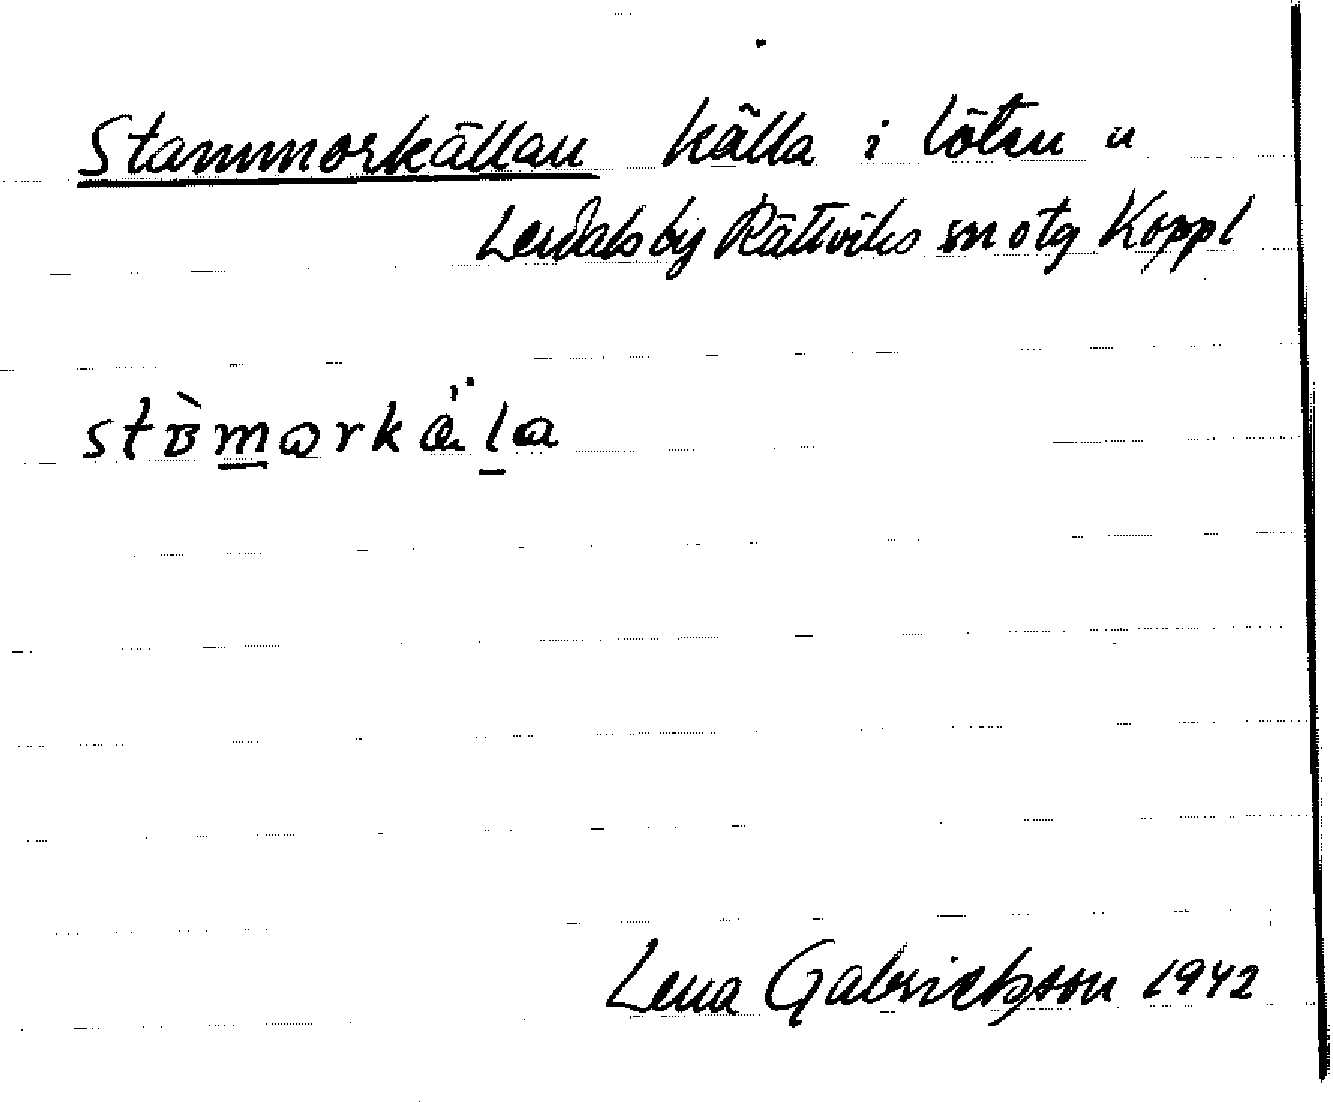 Stammorkällan källa i löten u
Lerdals by Rättviks sn otg Koppl
stʙ̀mɷrkæ̈la
Lena Gabrielsson 1942